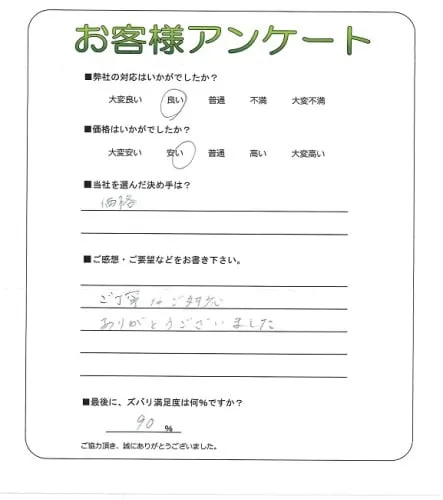 お客様アンケート
■弊社の対応はいかがでしたか?
大変良い 良い 普通 不満 大変不満
■価格はいかがでしたか?
大変安い 安い 普通 高い 大変高い
■当社を選んだ決め手は?
価格
■ご感想・ご要望などをお書き下さい。
ご丁寧なご対応
ありがとうございました
■最後に、ズバリ満足度は何%ですか?
90 %
ご協力頂き、誠にありがとうございました。